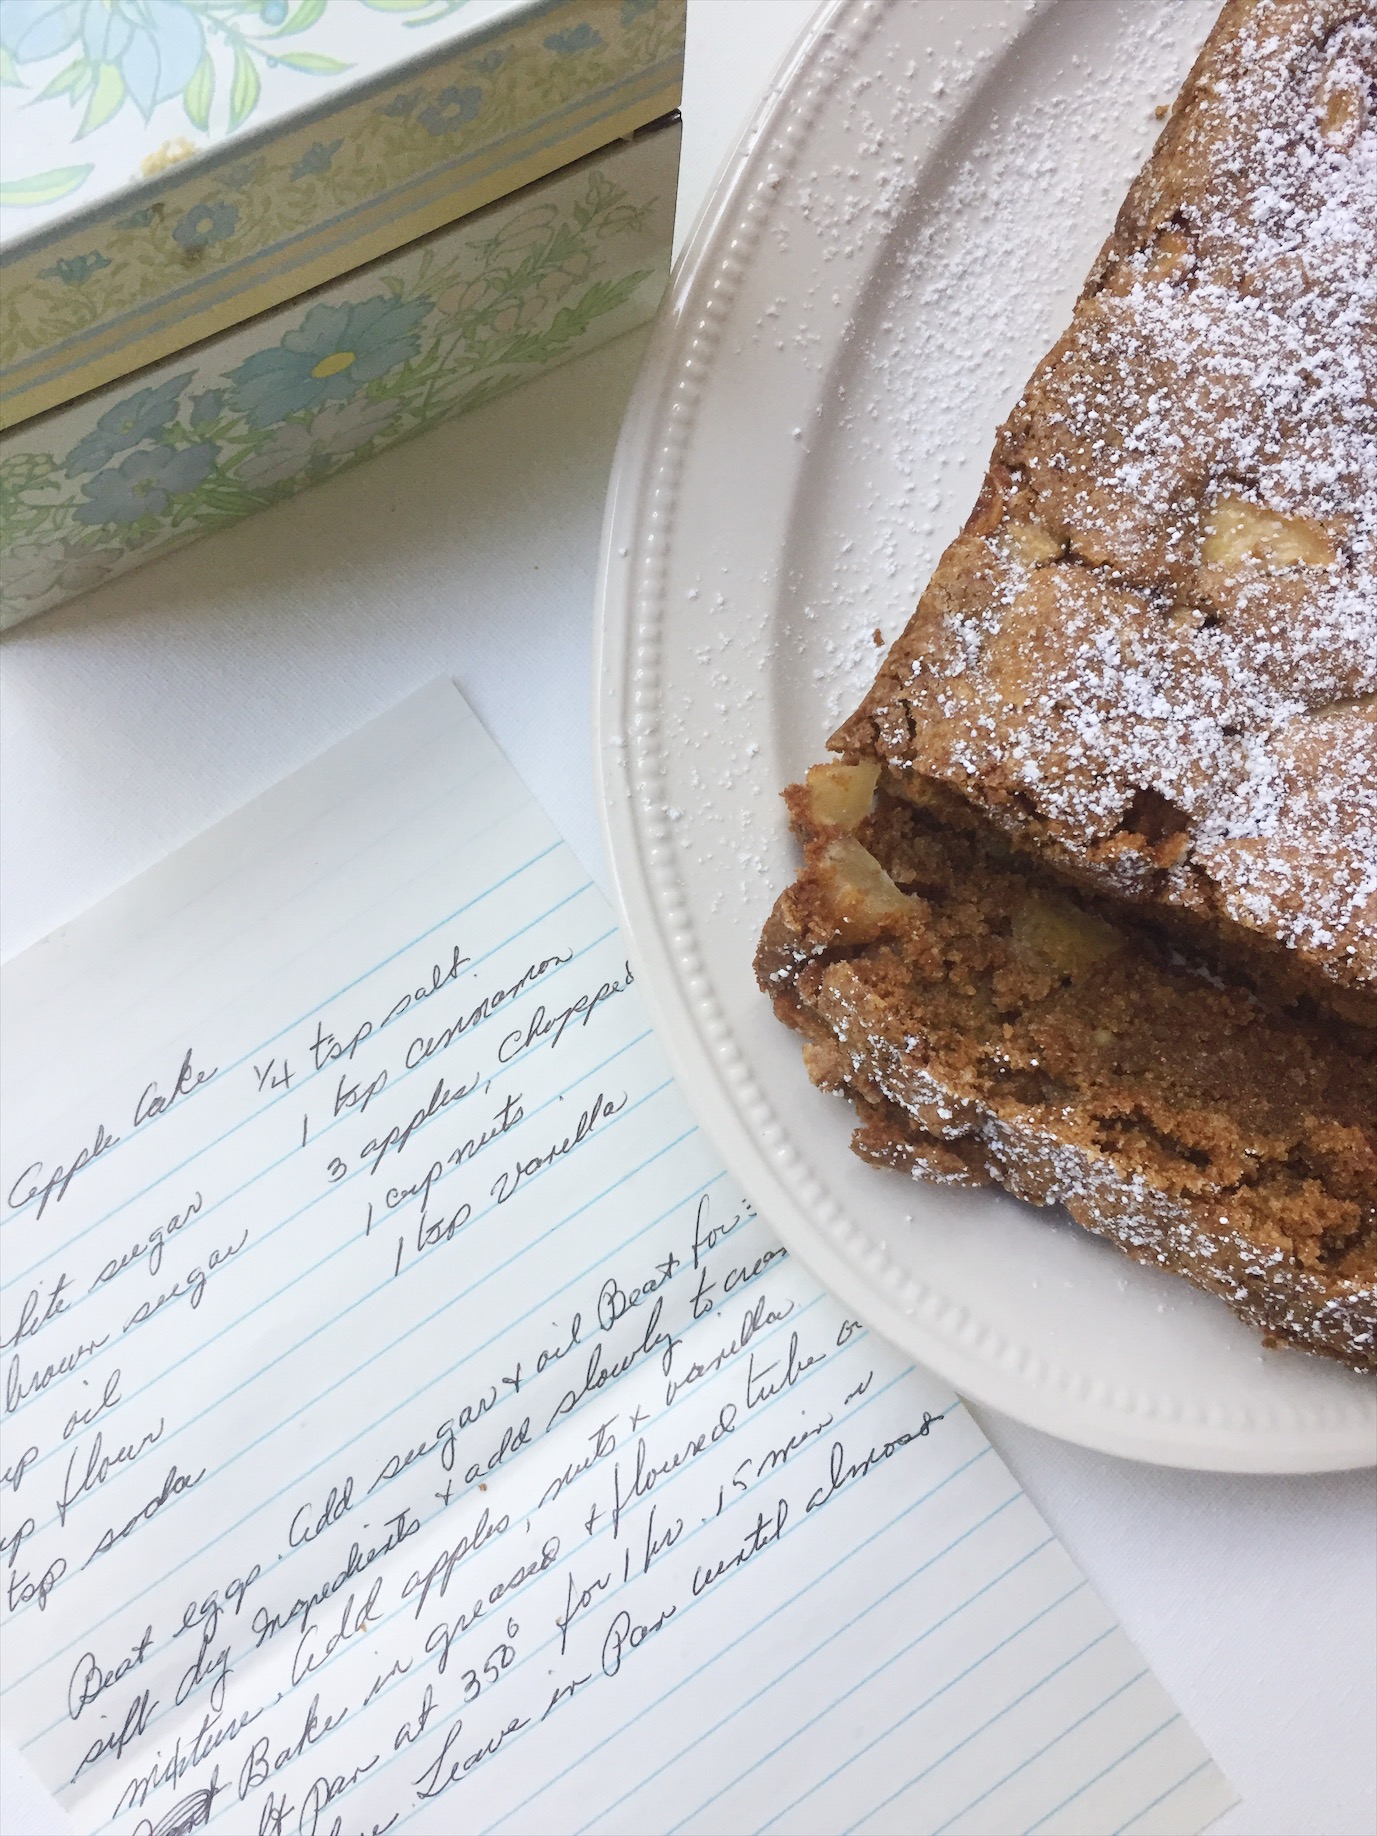 Apple Cake
1/4 tsp salt.
1 tsp cinnamon
3 apples, chopped
1 cup nuts.
1 tsp vanilla
sugar
brown sugar
oil
flour
tsp soda
Beat eggs. Add sugar + oil Beat for
sift dry Ingredients + add slowly to
mixture. Add apples, nuts + vanilla.
Bake in greased + floured tube or
Pan at 350° for 1 hr. 15 min
Leave in Pan until almost